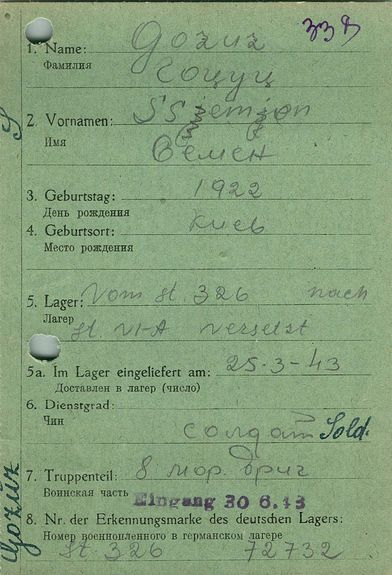 338
1. Name: Дозиз
Фамилия
Соцуц
2. Vornamen: Ssjemjon
Имя
Семен
3. Geburtstag: 1922
День рождения
4. Geburtsort: Киев
Место рождения
5. Lager: Vom st. 326 nach
Лагер
st VI-A versetzt
5a. Im Lager eingeliefert am: 25-3-43
Доставлен в лагер (число)
6. Dienstgrad:
Чин
солдат Sold.
7. Truppenteil: 8 мор. бриг
Воинская часть Eingang 30 6.43
8. Nr. der Erkennungsmarke des deutschen Lagers:
Номер военнопленного в германском лагере
St. 326 72732
Gozúz
S